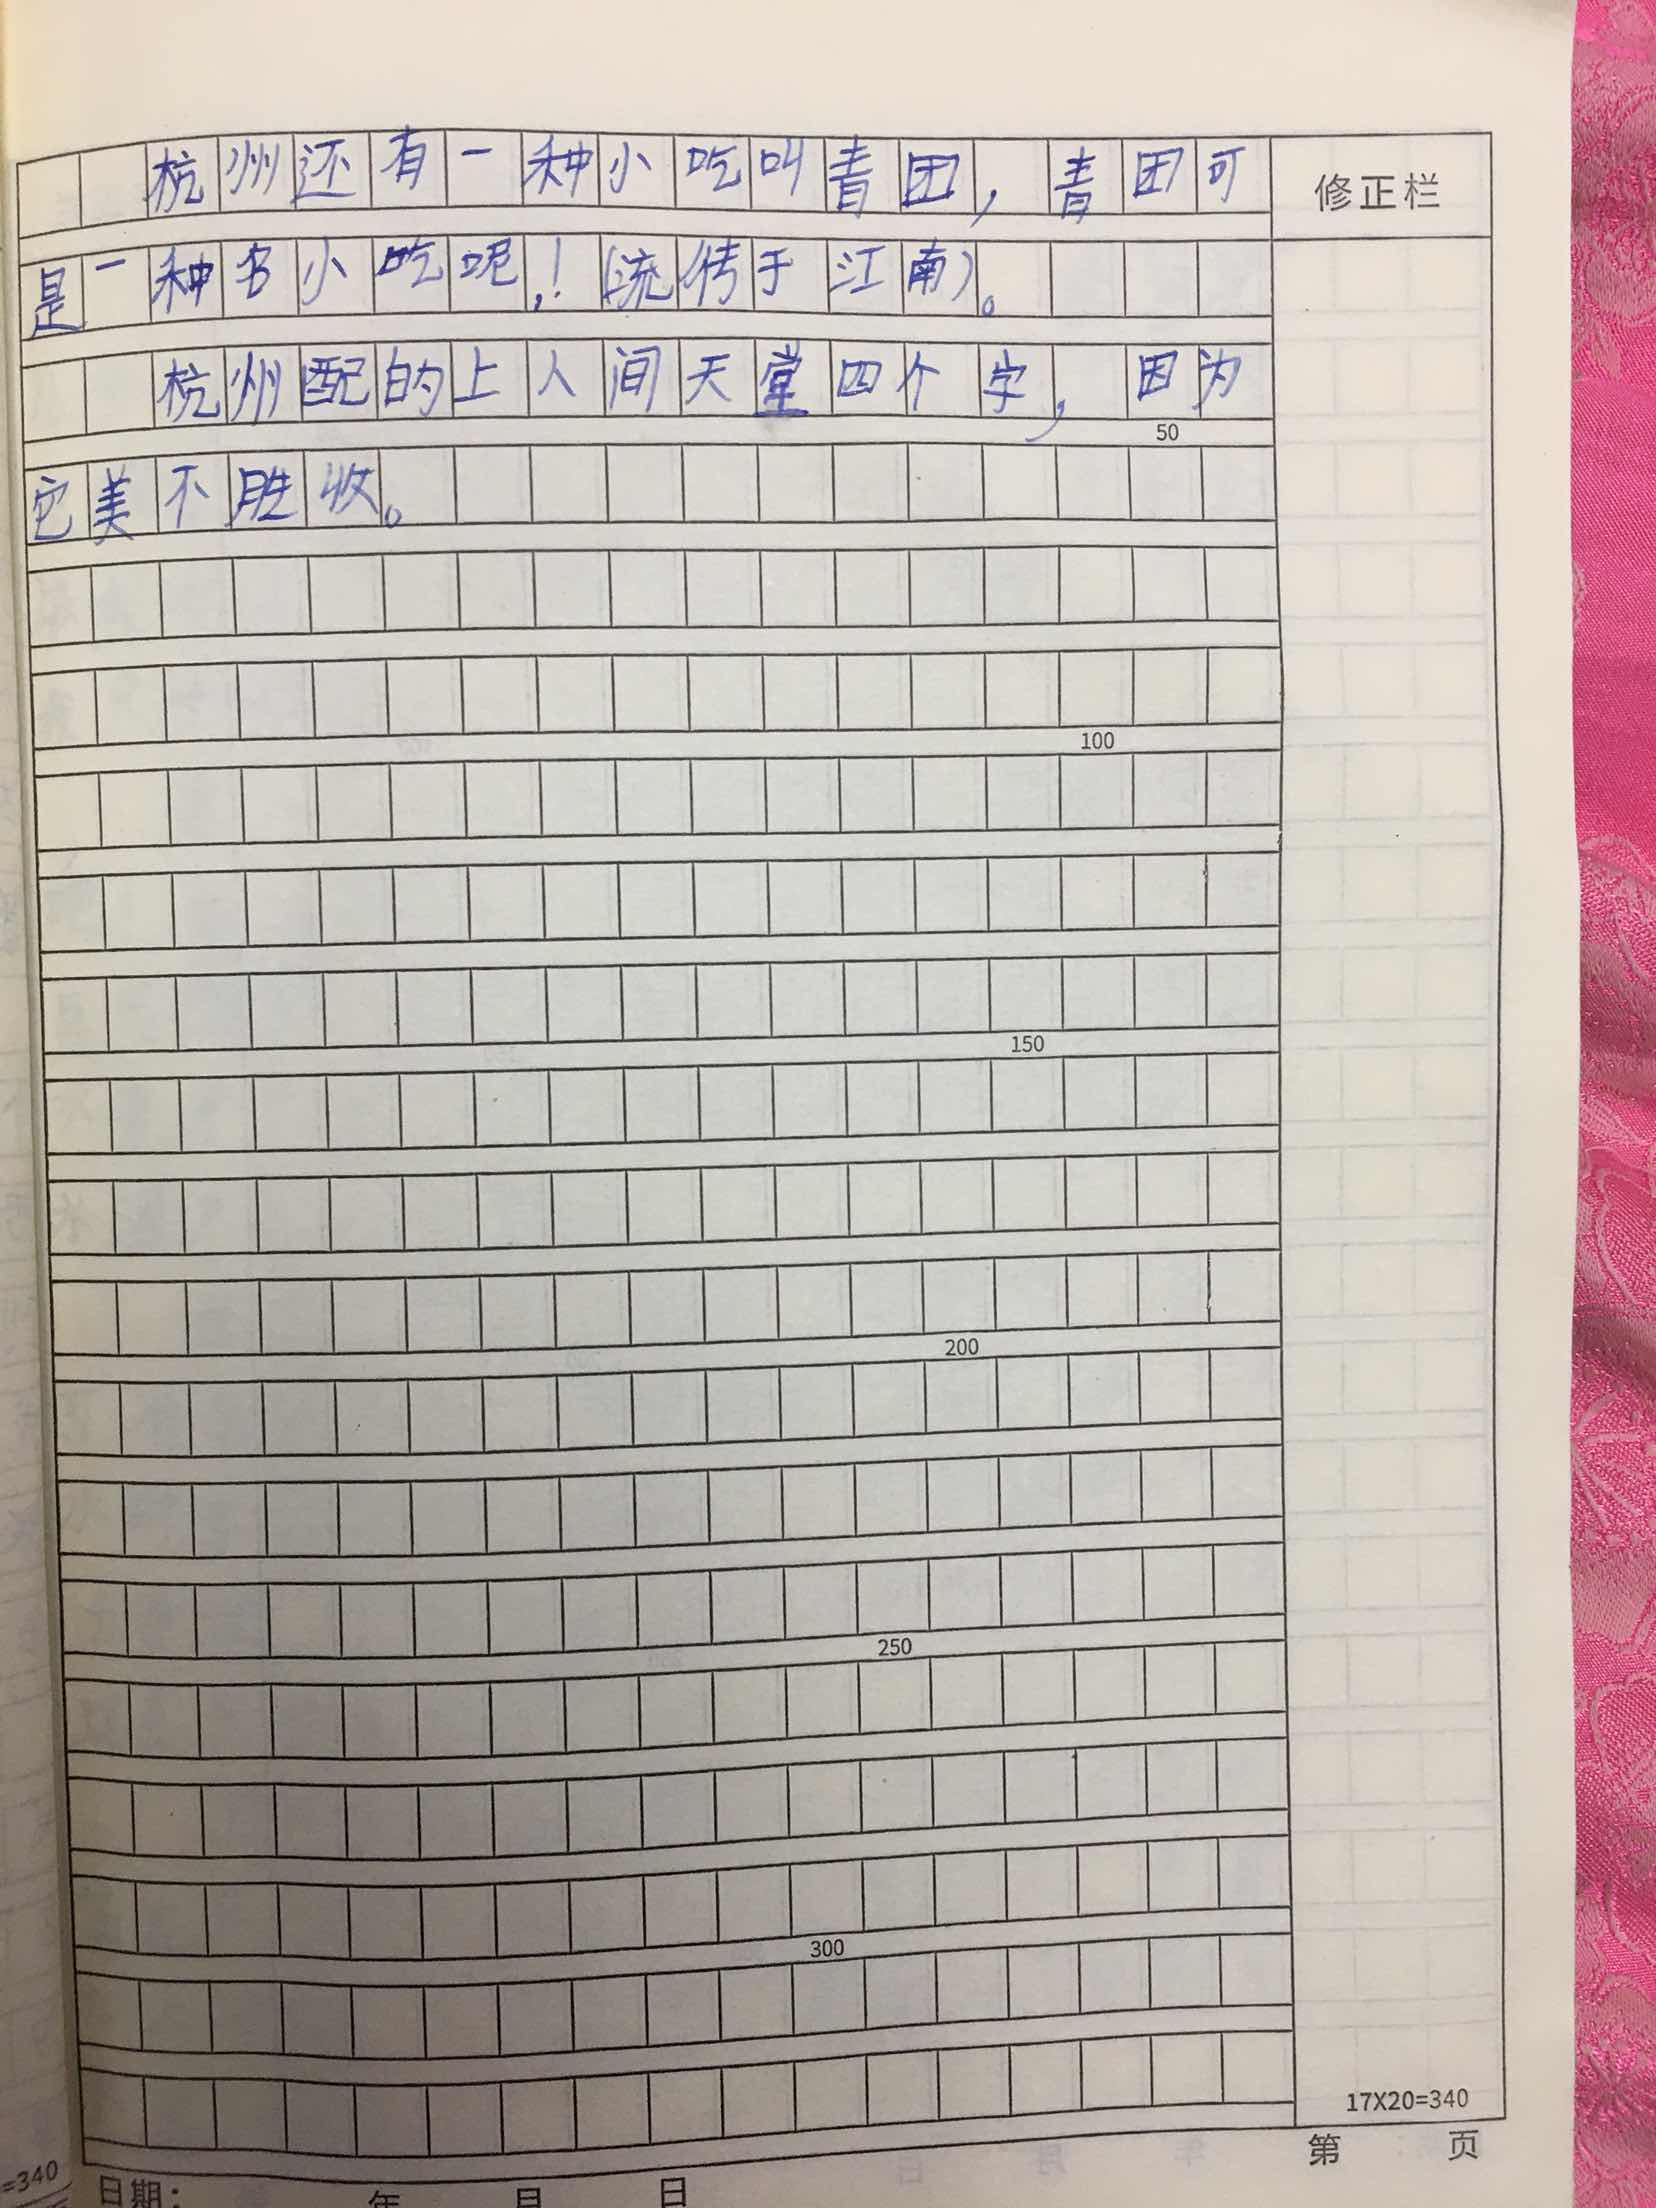 杭州还有一种小吃叫青团，青团可
修正栏
是一种名小吃呢！（流传于江南）。
杭州配的上人间天堂四个字，因为
50
它美不胜收。
100
150
200
250
300
17X20=340
第 页
=340
日期： 年 月 日